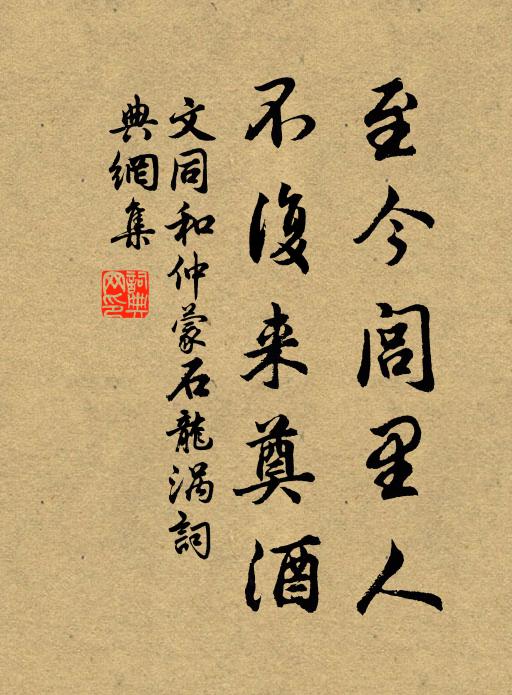 至今閭里人
不復来奠酒
文同和仲蒙石龍涡詞
典網集
詞典网印